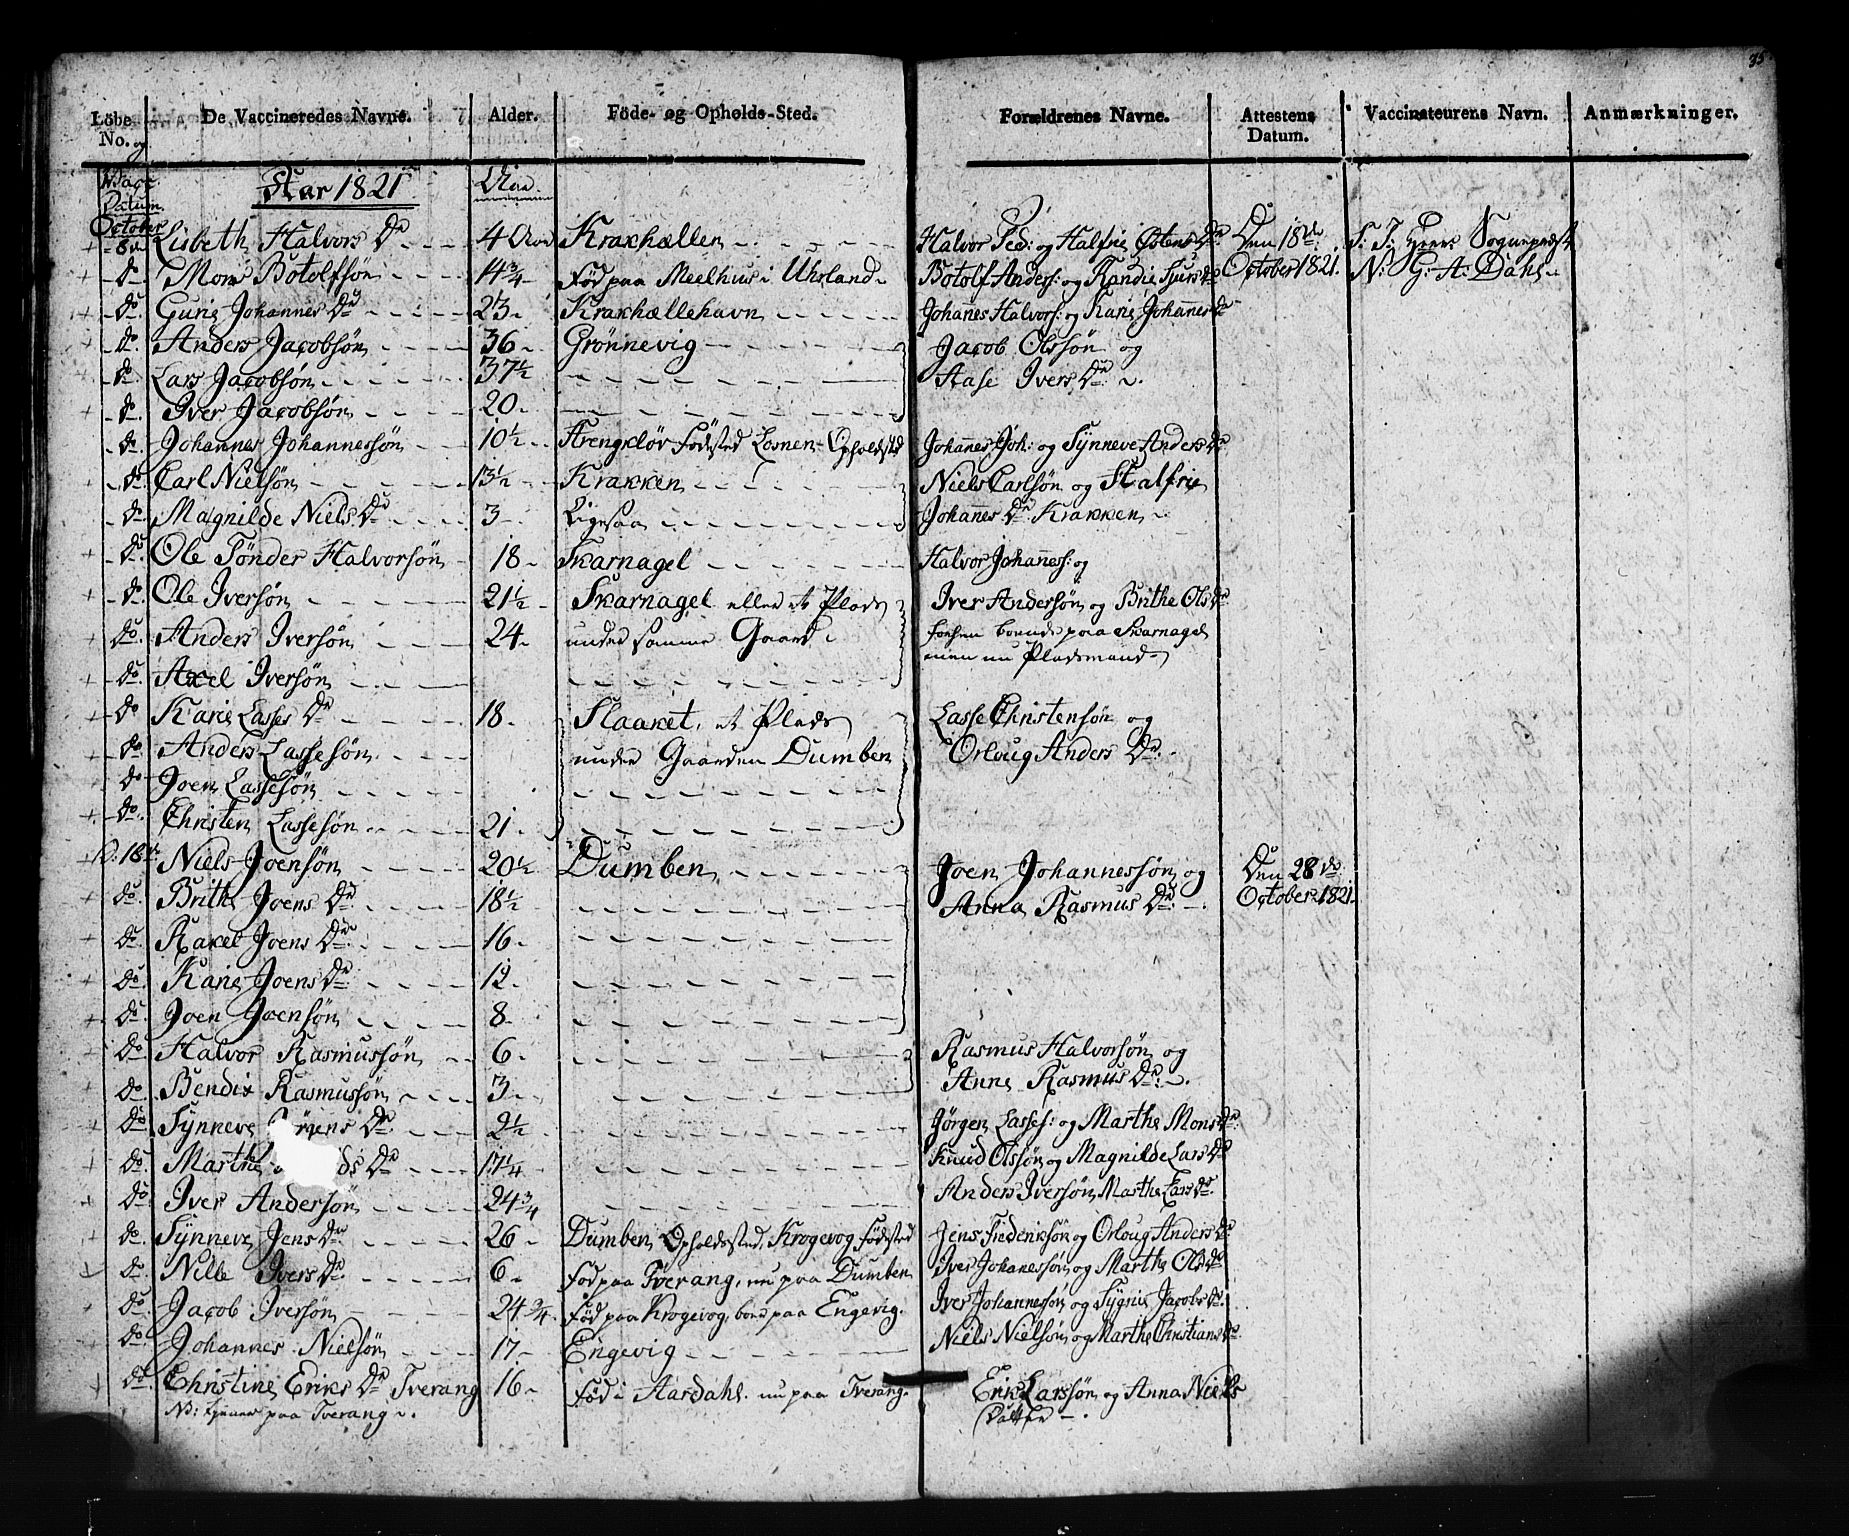 35
Löbe No. og Vacc: Datum. | De Vaccineredes Navne. | Alder. | Föde- og Opholds-Sted. | Forældrenes Navne. | Attestens Datum. | Vaccinateurens Navn. | Anmærkninger.
Aar 1821 | Aar.
October
8de Lisbeth Halvors Dr | 4 Aar | Kraxhællen | Halvor Ped: og Halfrie Østens Dr | Den 18de | S: T: Herr Sognepræst
do Mons Botolfsøn | 14 3/4 | Fød paa Meelhus i Uhrland | Botolf Anders: og Randie Siurs Dr | October 1821. | N: G: A: Dahl
do Gurie Johannes Dr | 23 | Kraxhællehavn | Johannes Halvors: og Karie Johannes Dr
do Anders Jacobsøn | 36 | Grønnevig | Jacob Olssøn og
do Lars Jacobsøn | 37 1/2 | Aase Ivers Dr
do Iver Jacobsøn | 20
do Johannes Johannessøn | 10 1/2 | Fødested Losnen Opholdsted | Johannes Joh: og Synneve Anders Dr
do Carl Nielsøn | 13 1/2 | Krakken | Niels Carlsøn og Halfrie
do Magnilde Niels Dr | 3 | Ligesaa | Johannes Dr Krakken
do Ole Tønder Halvorsøn | 18 | Skarnagel | Halvor Johanness: og
do Ole Iversøn | 21 1/2 | Skarnagel eller et Plads | Iver Andersøn og Brithe Ols Dr
do Anders Iversøn | 24 | under samme Gaard | forhen boende paa Skarnagel
men nu Pladsmand
do Axel Iversøn
do Karie Lasses Dr | 18 | Slaaket, et Plads | Lasse Christensøn og
do Anders Lassesøn | under Gaarden Dumben | Orloug Anders Dr
do Joen Lassesøn
do Christen Lassesøn | 21
D: 18de Niels Joensøn | 20 1/2 | Dumben | Joen Johannessøn og | Den 28de
do Brithe Joens Dr | 18 1/2 | Anna Rasmus Dr | October 1821.
do Rakel Joens Dr | 16
do Karie Joens Dr | 12
do Joen Joensøn | 8
do Halvor Rasmussøn | 6 | Rasmus Halvorsøn og
do Bendix Rasmussøn | 3 | Anne Rasmus Dr
do Synneve Jørgens Dr | 2 1/2 | Jørgen Lasses: og Marthe Mons Dr
do Marthe Dr | 17 1/4 | Knud Olssøn og Magnilde Lars Dr
do Iver Andersøn | 24 3/4 | Anders Iversøn, Marthe Lars Dr
do Synneve Jens Dr | 26 | Dumben Opholdsted, Krogevog Fødsted | Jens Fiderichsøn og Orloug Anders Dr
do Nille Ivers Dr | 6 | Fød paa Tverang, nu paa Dumben | Iver Johanessøn og Marthe Ols Dr
do Jacob Iversøn | 24 3/4 | Fød paa Krogevog, boer paa Engevig. | Iver Johannessøn og Sygnie Jacobs Dr
do Johannes Nielsøn | 17 | Engevig | Niels Nielsøn og Marthe Christians Dr
do Christine Eriks Dr Tverang | 16 | Fød i Aardahl. nu paa Tverang. | Erik Larssøn og Anna Niels
NB: tjener paa Tverang | Datter